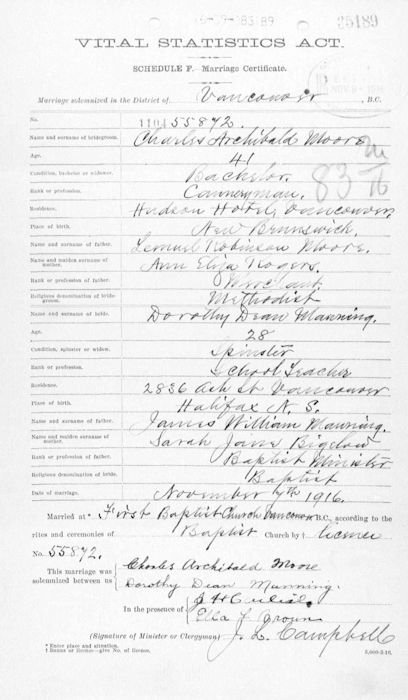 25189
VITAL STATISTICS ACT.
SCHEDULE F.—Marriage Certificate.
Marriage solemnized in the District of Vancouver , B.C.
No. 55872.
Name and surname of bridegroom. Charles Archibald Moore
Age. 41
Condition, bachelor or widower. Bachelor.
Rank or profession. Canneryman.
Residence. Hudson Hotel, Vancouver.
Place of birth. New Brunswick.
Name and surname of father. Lemuel Robinson Moore.
Name and maiden surname of mother. Ann Eliza Rogers.
Rank or profession of father. Merchant
Religious denomination of bridegroom. Methodist
Name and surname. Dorothy Dean Manning.
Age. 28
Condition, spinster or widow. Spinster
Rank or profession. School Teacher
Residence. 2836 Ash St Vancouver
Place of birth. Halifax N. S.
Name and surname of father. James William Manning.
Name and maiden surname of mother. Sarah Jane Bigelow
Rank or profession of father. Baptist Minister
Religious denomination of bride. Baptist
Date of marriage. November 7th 1916.
Married at* First Baptist Church Vancouver B.C., according to the
rites and ceremonies of Baptist Church by† license
No. 55872.
This marriage was solemnized between us
Charles Archibald Moore
Dorothy Dean Manning.
In the presence of
Ella J
J. L. Campbell
(Signature of Minister or Clergyman)
* Enter place and situation.
† Banns or license—give No. of license.
5,000-3-16.